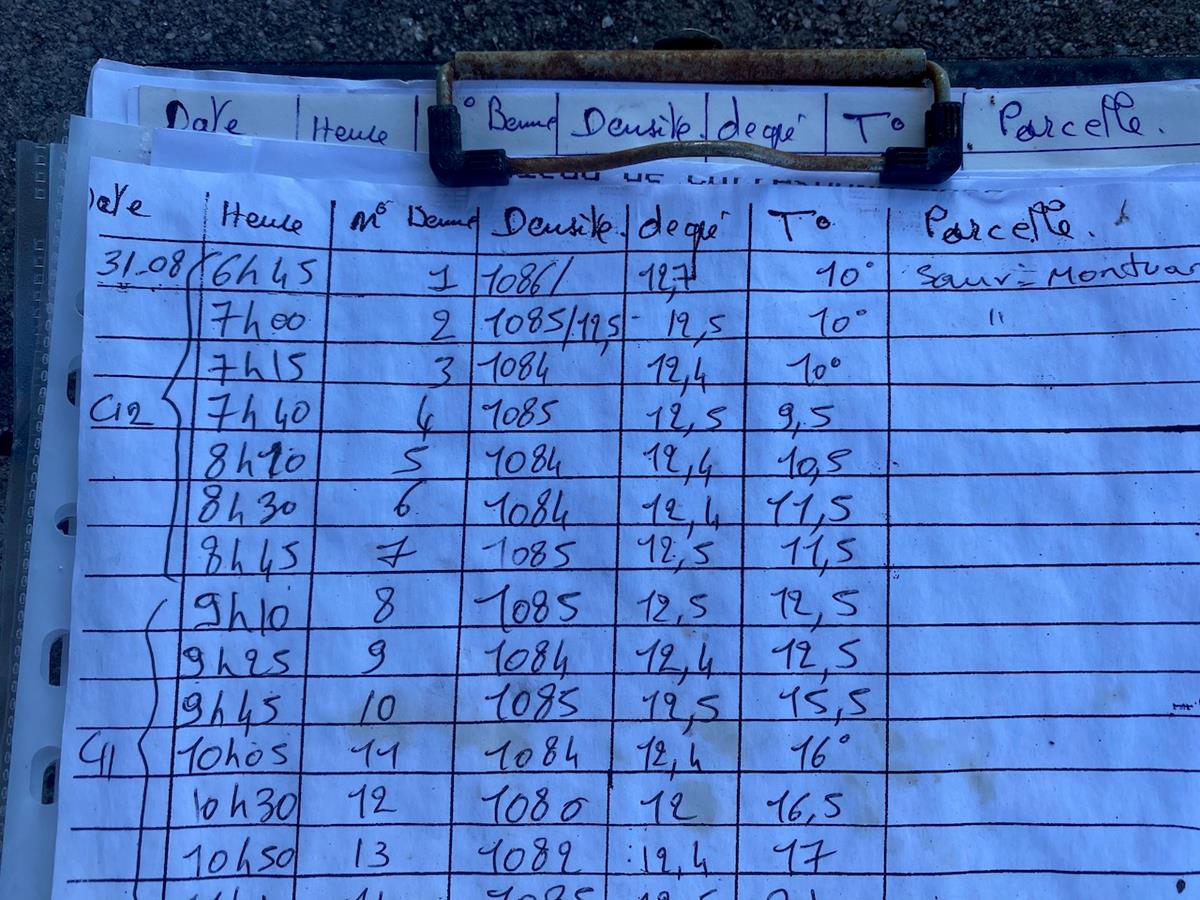 Date Heure ° Benne Densité degré T° Parcelle.
Date Heure N° Benne Densité. degré T° Parcelle.
31.08 6h45 1 1086/ 12,7 10° Sauv=
7h00 2 1085/12,5 12,5 10° "
7h15 3 1084 12,4 10°
7h40 4 1085 12,5 9,5
8h10 5 1084 12,4 10,5
8h30 6 1084 12,4 11,5
8h45 7 1085 12,5 11,5
9h10 8 1085 12,5 12,5
9h25 9 1084 12,4 12,5
9h45 10 1085 12,5 15,5
10h05 11 1084 12,4 16°
10h30 12 1080 12 16,5
10h50 13 1082 12,4 17